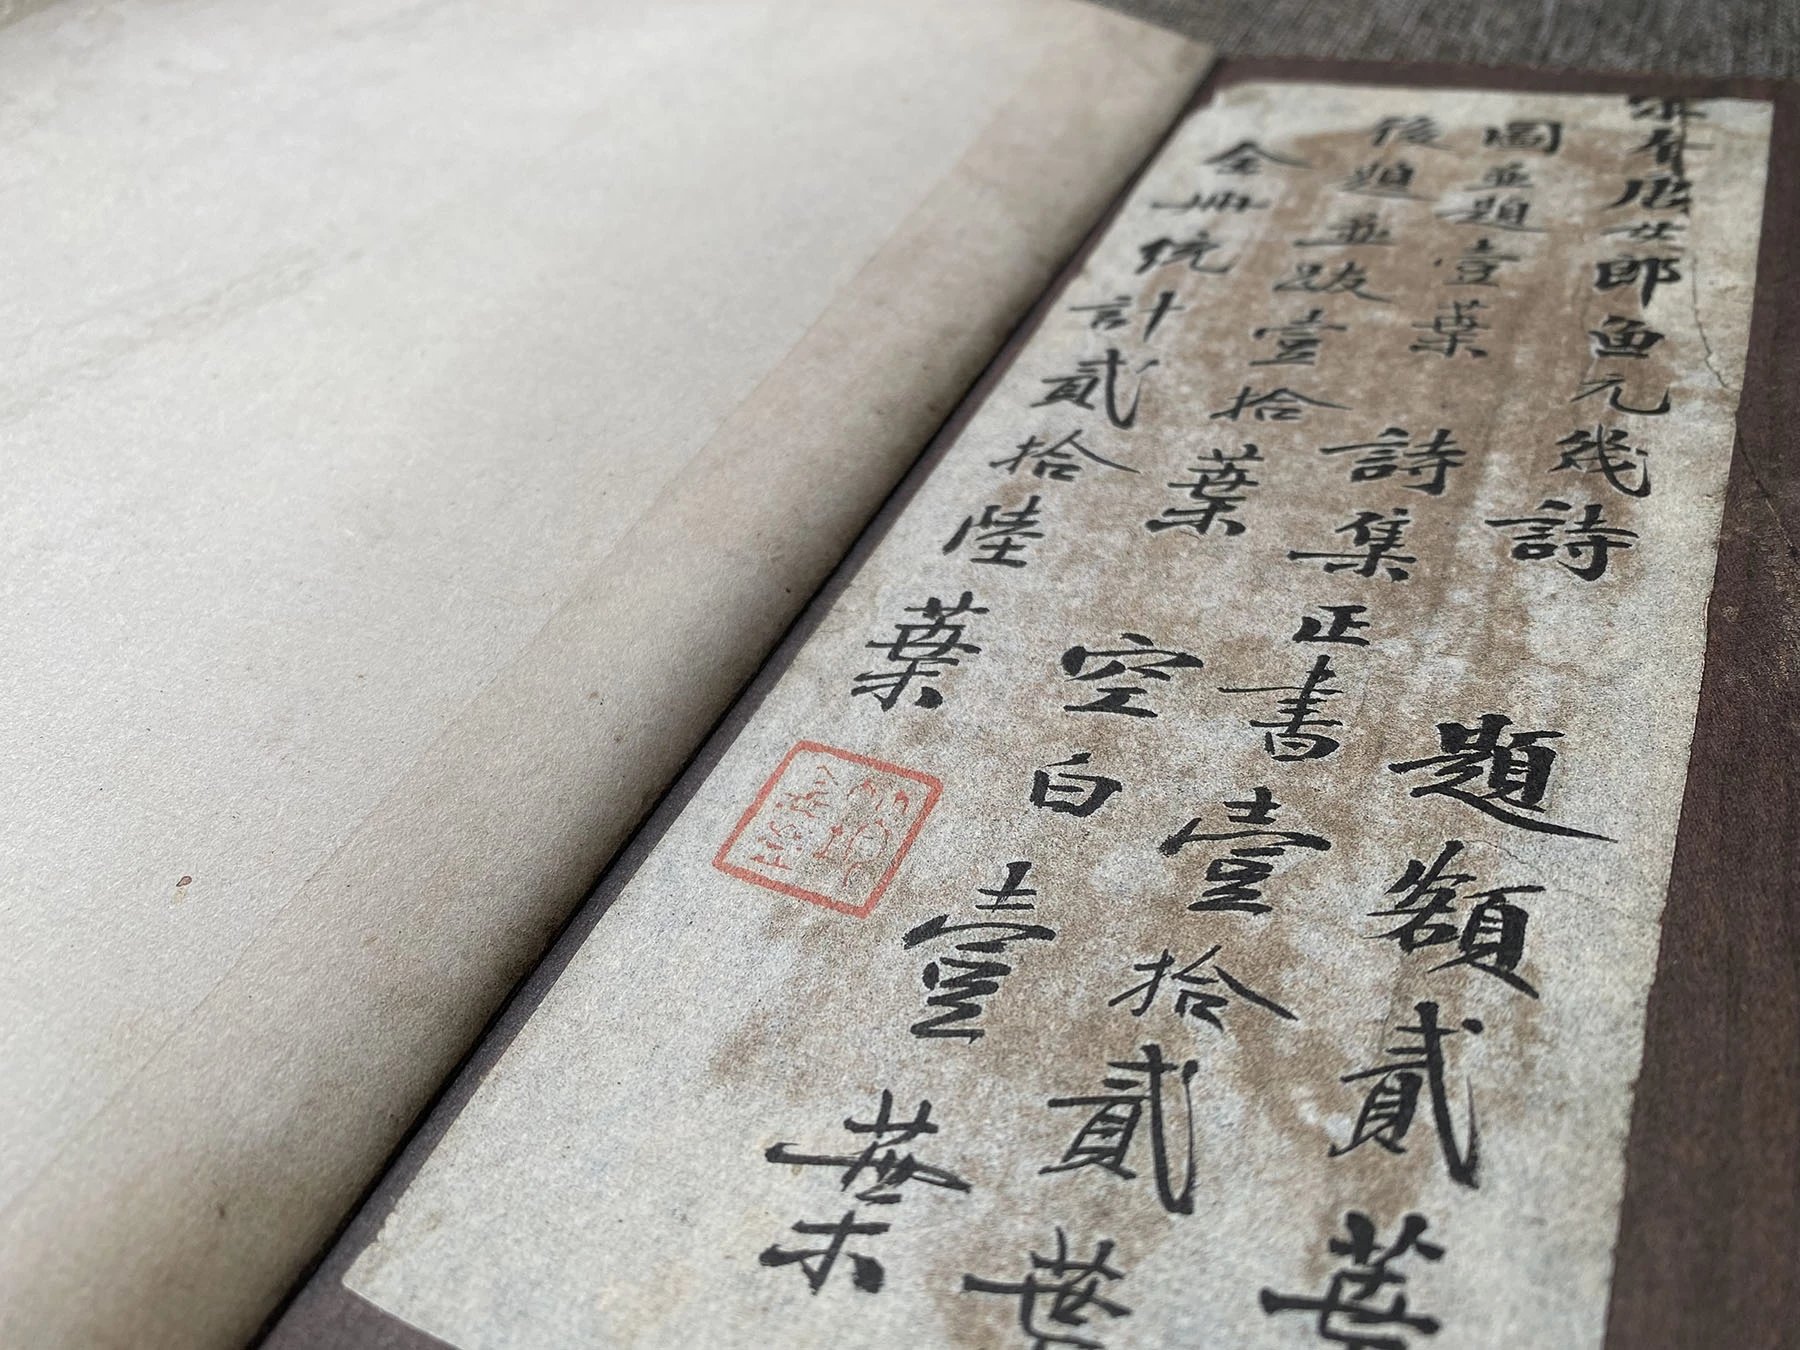 唐女郎魚元幾詩 題額貳葉
圖並題壹葉 詩集正書壹拾貳葉
後題並跋壹拾葉 空白壹葉
全冊統計貳拾陸葉